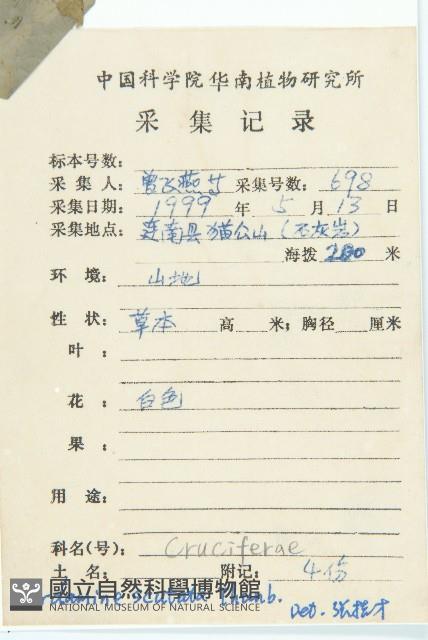 中国科学院华南植物研究所
采集记录
标本号数:
采集人: 曾飞燕等 采集号数: 698
采集日期: 1999 年 5 月 13 日
采集地点: 连南县猫公山(石灰岩)
海拨 200 米
环境: 山地
性状: 草本 高 米; 胸径 厘米
叶:
花: 白色
果:
用途:
科名(号): Cruciferae
土名: 附记: 4份
國立自然科學博物館
NATIONAL MUSEUM OF NATURAL SCIENCE
Thunb.
Det.